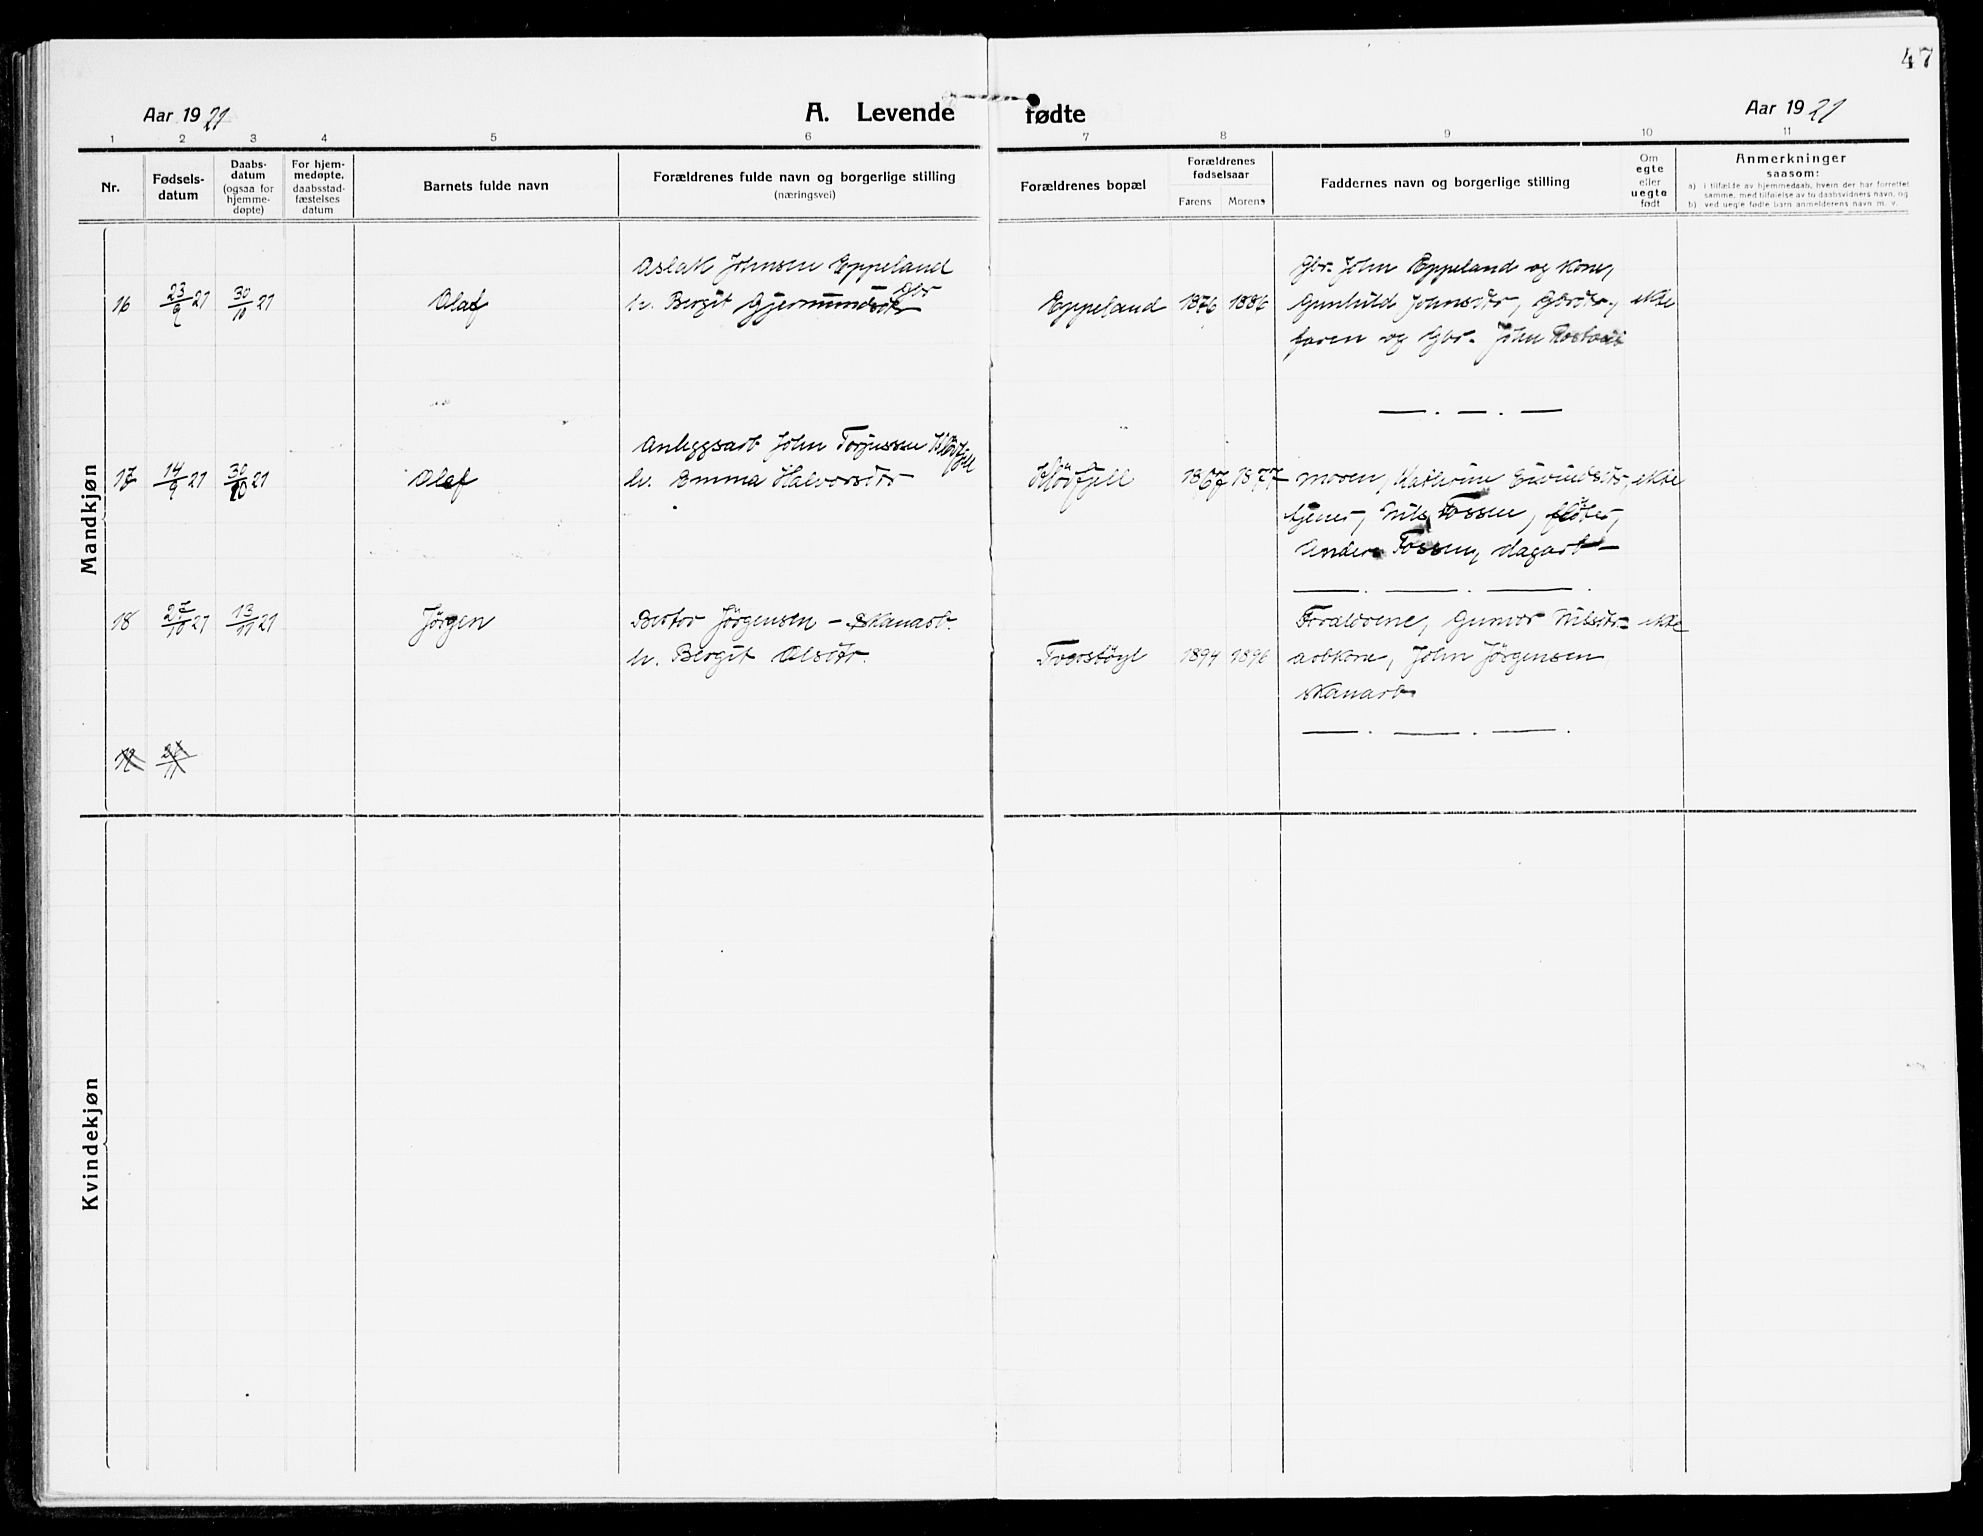 47
Aar 1921
A. Levende fødte
Aar 1921
1 2 3 4 5 6 7 8 9 10 11
Nr.
Fødsels-
datum
Daabs-
datum
(ogsaa for
hjemme-
døpte)
For hjem-
medøpte.
daabsstad-
fæstelses
datum
Barnets fulde navn
Forældrenes fulde navn og borgerlige stilling
(næringsvei)
Forældrenes bopæl
Forældrenes
fødselsaar
Farens Morens
Faddernes navn og borgerlige stilling
Om
egte
eller
uegte
født
Anmerkninger
saasom:
a) i tilfælde av hjemmedaab, hvem der har forrettet
samme, med tilføielse av to daabsvidners navn, og
b) ved uegte fødte barn anmelderens navn m. v.
Mandkjøn
16 23/9 21 30/10 21 Olaf
Aslak Johnsen Eppeland
Gbr
h. Bergit Gjermundsdtr
Eppeland 1876 1886
Gbr. John Eppeland og kone,
Gunhild Johnsdtr, Gbrdtr., ekte
faren og Gbr. John
17 14/9 21 30/10 21 Olaf
Anleggsarb. John Torjussen Kløvfjell
h. Emma Halvorsdtr
Kløvfjell 1867 1877
moren, Katerine Eivindsdtr, ekte
tjener, Nils Fossen, fløter,
Anders Fossen, dagarb.
18 27/10 21 13/11 21 Jørgen
Bertor Jørgensen - skanarb.
h. Bergit Olsdtr.
Tverstøyl 1894 1896
Foreldrene, Gunvor Nilsdtr. ekte
arbkone, John Jørgensen
skanarb.
Kvindekjøn